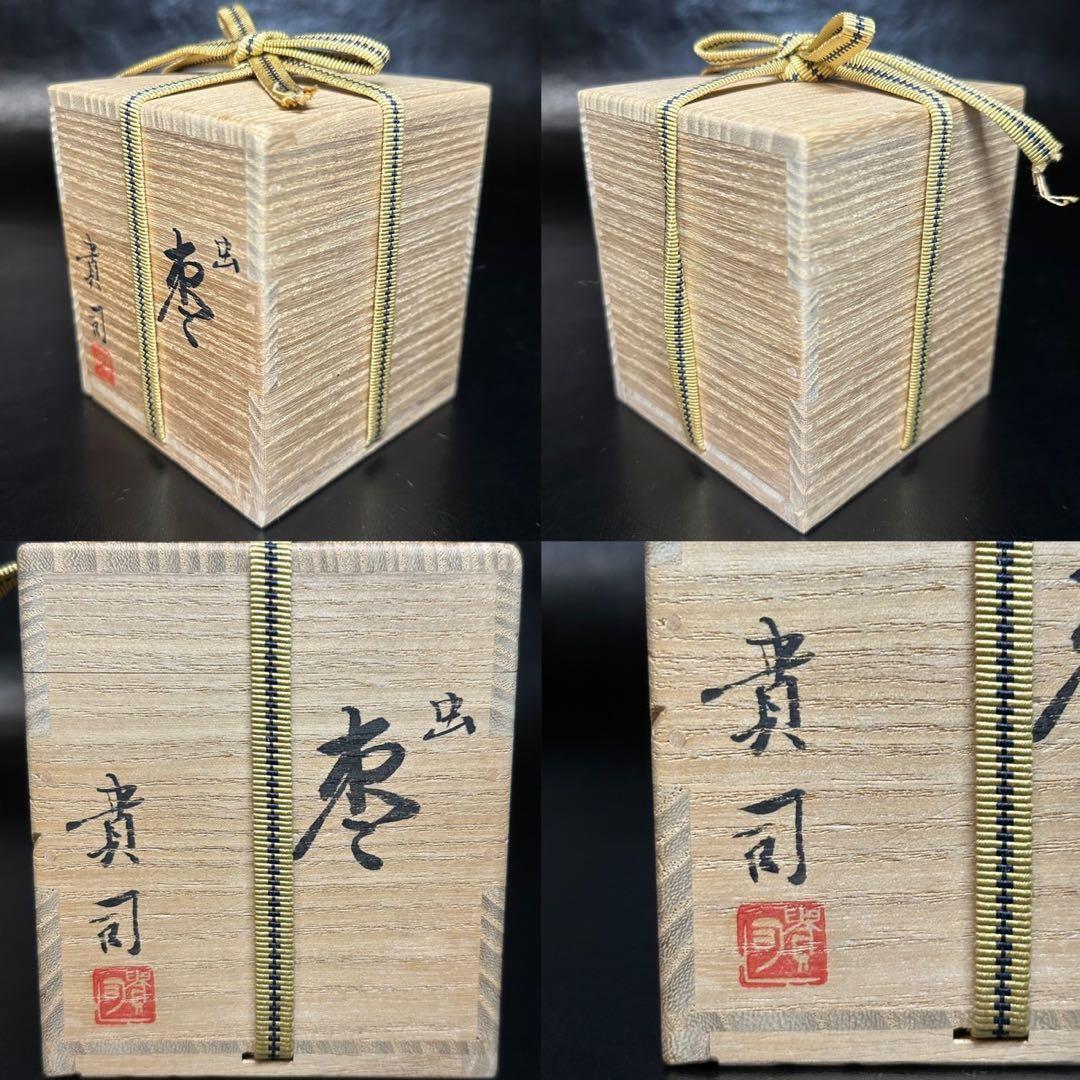 虫
棗
貴司
虫
棗
貴司
貴司